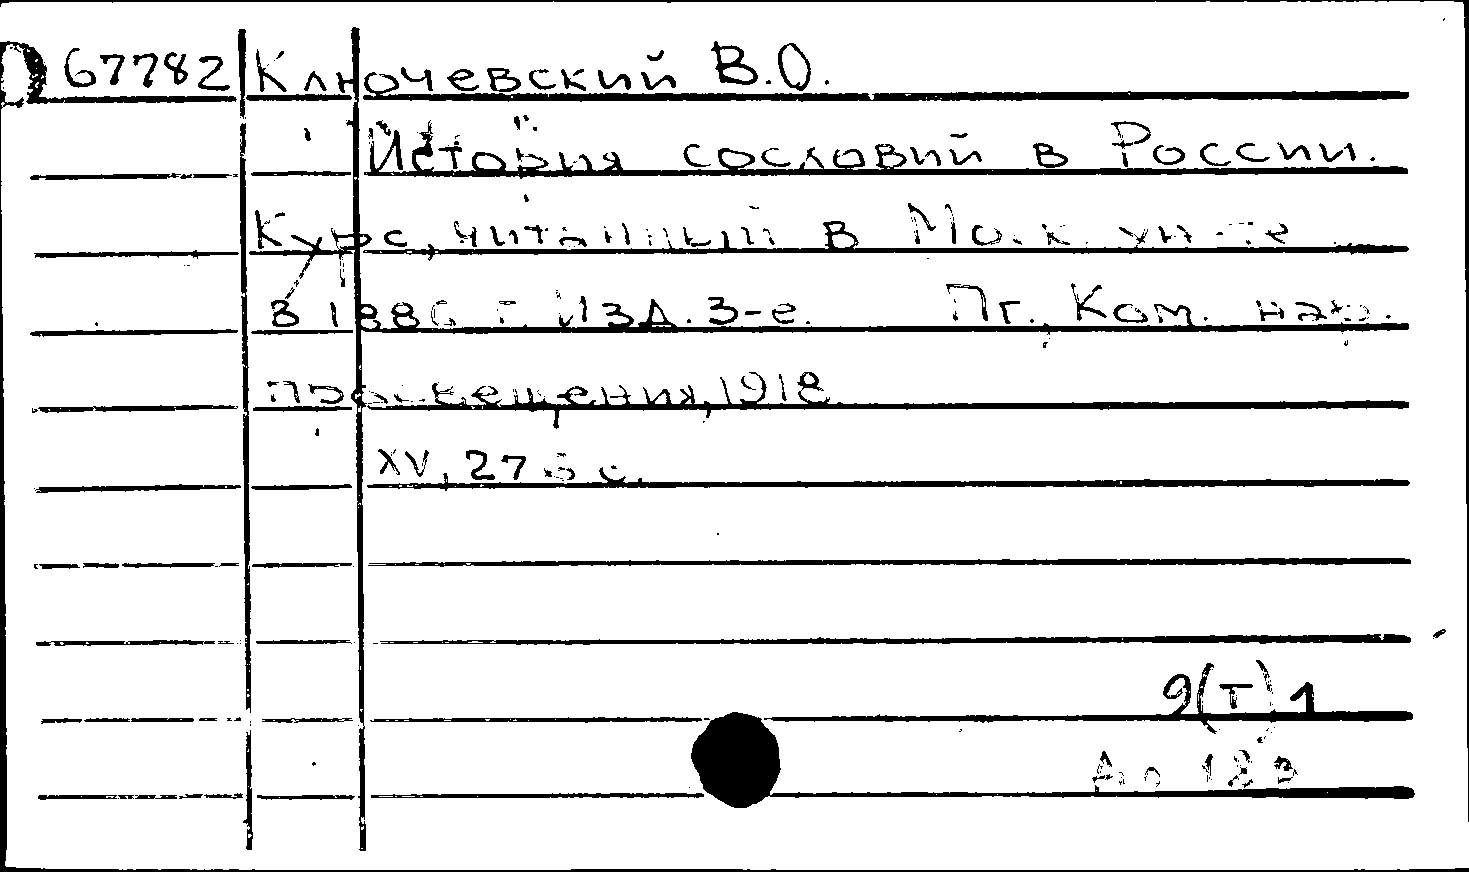 67782 Ключевский В.О.
История сословий в России.
Курс, читанный в Моск. ун-те
в 1886 г. Изд. 3-е. Пг., Ком. нар.
просвещения, 1918
XV, 276 с.
9(Т)1